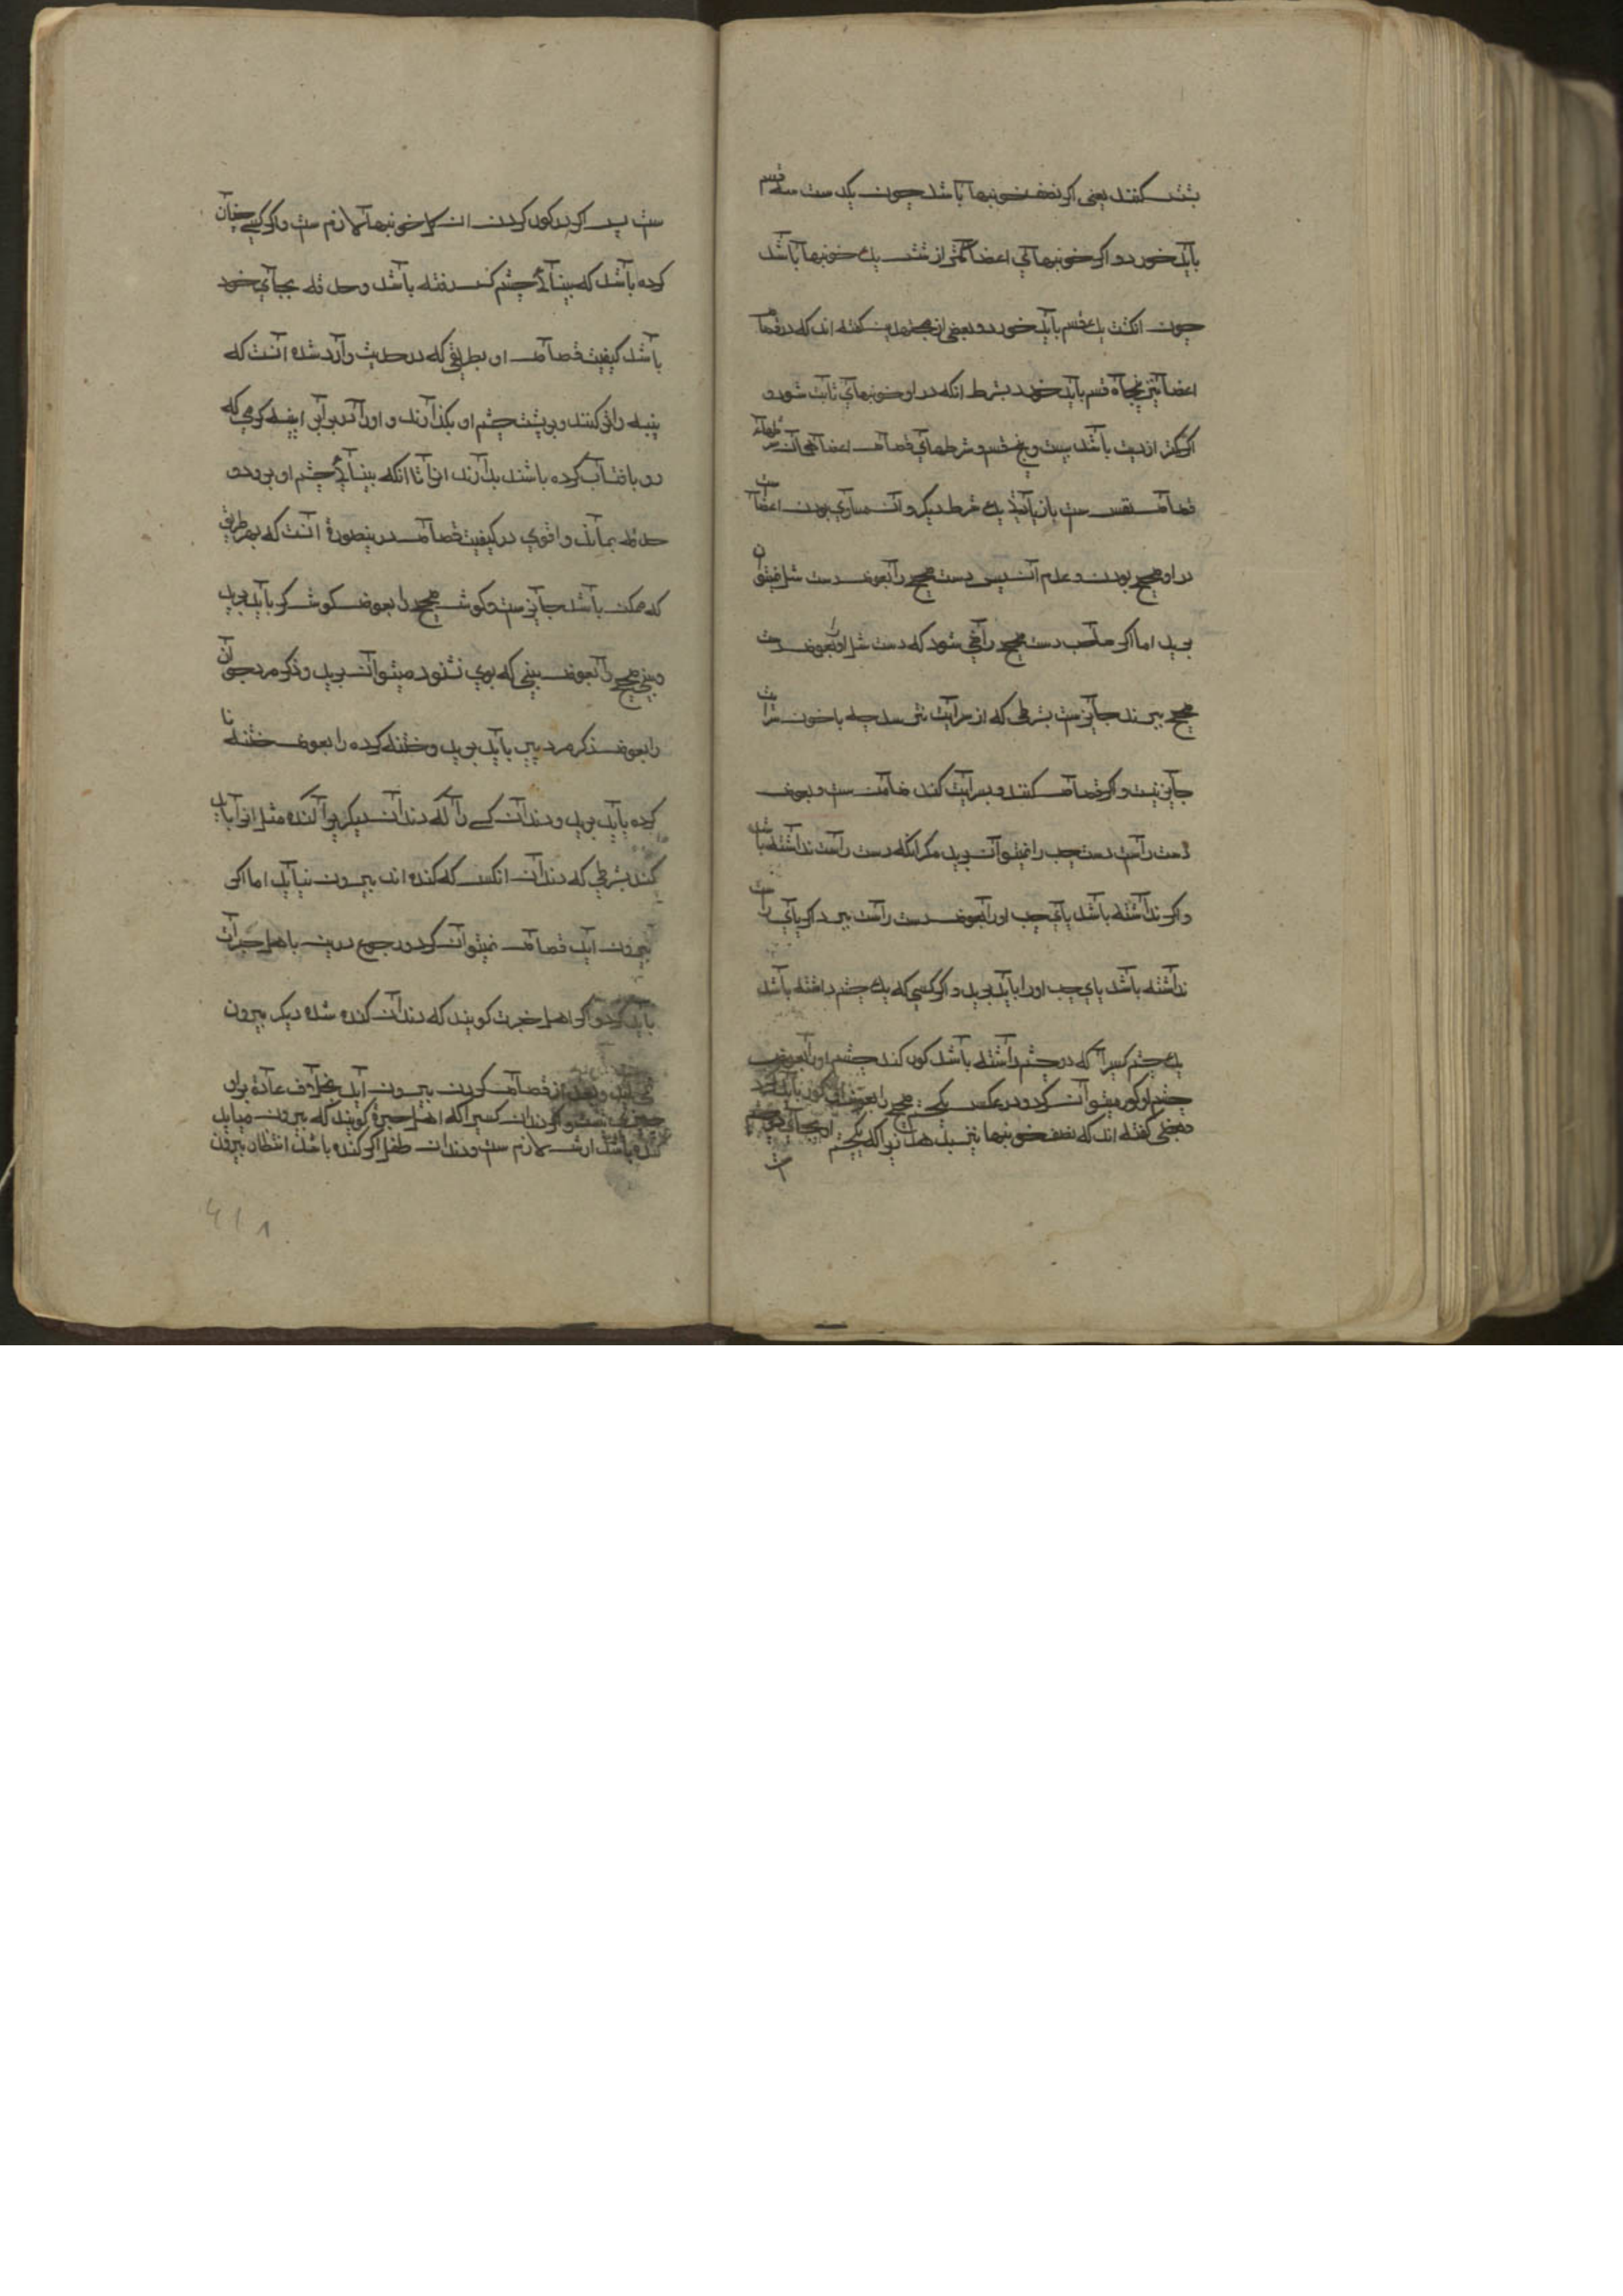 بشش کنند یعنی اکر نصف خونبها باشد چون یکدست سه قسم
باید خورد و اکر خونبهای اعضا کمتر از شش یك خونبها باشد
چون انکشت یك قسم باید خورد و بعضی از مجتهدین کفته اند که در قصاص
اعضا نیز پنجاه قسم باید خورد بشرط انکه در او خونبهای ثابت شود و
اکر کمتر از دیت باشد بیست و پنج قسم و شرطهای قصاص اعضا همان شرطهای
قصاص نفس ست بازیادتی یك شرط دیکر و آن مساوی بودن اعضاست
در او صحیح بودن و عدم آن پس دست صحیح را بعوض دست شل نمیتوان
برید اما اکر صاحب دست صحیح راضی شود که دست شل او را بعوض دست
صحیح ببرند جایز ست بشرطی که از سرایت نترسد چه با خوف سرایت
جایز نیست و اکر قصاص کنند و سرایت کند ضامن ست و بعوض
دست راست دست چپ را نمیتوان برید مکر انکه دست راست نداشته باشد
و اکر نداشته باشد پای چپ او را بعوض دست راست ببرد اکر پای راست
نداشته باشد پای چپ او را باید برید و اکر کسی که یك چشم داشته باشد
یك چشم کسیرا که دو چشم داشته باشد کور کند چشم او را بعوض
چشم او کور میتوان کرد و در عکس یکچشم صحیح را بعوض او کور باید کرد
و بعضی کفته اند که نصف خونبها نیز بدهد زیرا که یکچشم او بجای دو چشم
ست
ست پس اکر در کور کردن ان کل خونبها لازم ست و اکر کسی چنان
کرده باشد که بینائی چشم کسی رفته باشد و حدقه بجای خود
باشد کیفیت قصاص او بطریقی که در حدیث وارد شده آنست که
پنبه را تر کنند و بر پشت چشم او بکذارند و او را در برابر اینه کرمی که
رو بافتاب کرده باشند بدارند او را تا انکه بینائی چشم او برود و
حدقه بماند و اقوی در کیفیت قصاص درینصورة آنست که بهر طریق
که ممکن باشد جایز ست و کوش صحیح را بعوض کوش کر باید برید
و بینی صحیح را بعوض بینی که بوی نشنود میتوان برید و ذکر مرد جوان
را بعوض ذکر مرد پیر باید برید و ختنه کرده را بعوض ختنه نا
کرده باید برید و دندان کسی را که دندان دیکریرا کنده مثل انرا باید
کند بشرطی که دندان انکس که کنده اند بیرون نیاید اما اکر
بیرون اید قصاص نمیتوان کرد و رجوع درین باهل خبرت
باید کرد و اکر اهل خبرت کویند که دندان کنده شده دیکر بیرون
نمی اید و بعد از قصاص کردن بیرون آید بخلاف عادة بر او
چیزی نیست و اکر دندان کسیرا که اهل خبرة کویند که بیرون میاید
کنده باشد ارش لازم ست و دندان طفل اکر کنده باشد انتظار بیرون